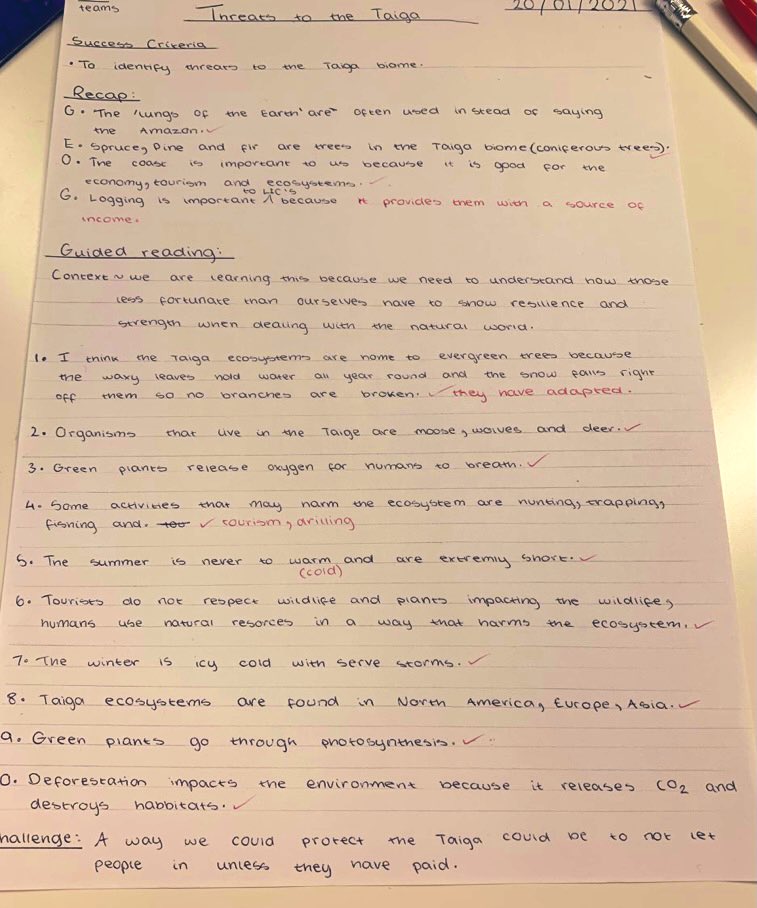 teams
Threats to the Taiga
20/01/2021
Success Criteria
• To identify threats to the Taiga biome.
Recap:
G. The 'lungs of the Earth' are often used in stead of saying
the Amazon. ✓
E. Spruce, Pine and fir are trees in the Taiga biome (coniferous trees). ✓
O. The coast is important to us because it is good for the
economy, tourism and ecosystems. ✓
to LIC's
G. Logging is important ^ because it provides them with a source of
income.
Guided reading:
Context ~ we are learning this because we need to understand how those
less fortunate than ourselves have to show resilience and
strength when dealing with the natural world.
1. I think the Taiga ecosystems are home to evergreen trees because
the waxy leaves hold water all year round and the snow falls right
off them so no branches are broken. ✓ they have adapted.
2. Organisms that live in the Taige are moose, wolves and deer. ✓
3. Green plants release oxygen for humans to breath. ✓
4. Some activities that may harm the ecosystem are hunting, trapping,
fishing and. too ✓ tourism, drilling
5. The summer is never to warm and are extremly short. ✓
(cold)
6. Tourists do not respect wildlife and plants impacting the wildlife,
humans use natural resorces in a way that harms the ecosystem. ✓
7. The winter is icy cold with serve storms. ✓
8. Taiga ecosystems are found in North America, Europe, Asia. ✓
9. Green plants go through photosynthesis. ✓
0. Deforestation impacts the environment because it releases CO₂ and
destroys habbitats. ✓
hallenge: A way we could protect the Taiga could be to not let
people in unless they have paid.